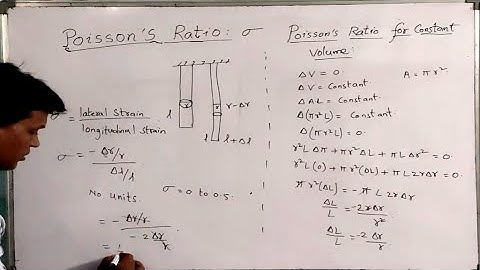 Poisson's Ratio: σ
= lateral strain / longitudnal strain
l
r-Δr
l+Δl
σ = -Δr/r / Δl/l
No units.
σ = 0 to 0.5.
= -Δr/r / -2Δr/r
= 1
Poisson's Ratio for Constant
Volume:
ΔV = 0.
A = πr².
ΔV = Constant.
ΔAL = Constant.
Δ(πr²L) = Constant.
Δ(πr²L) = 0.
r²LΔπ + πr²ΔL + πLΔr² = 0.
r²L(0) + πr²(ΔL) + πL2rΔr = 0.
πr²(ΔL) = -πL2rΔr
ΔL/L = -2rΔr/r²
ΔL/L = -2Δr/r